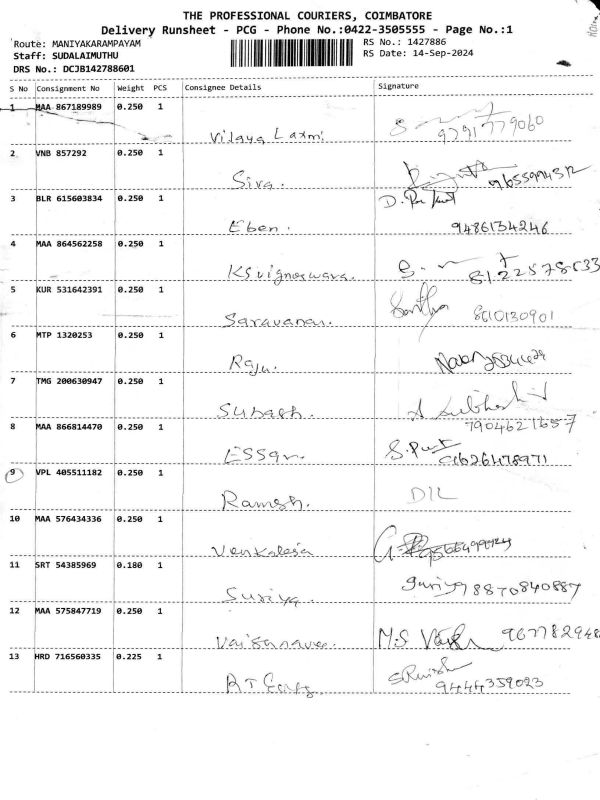 THE PROFESSIONAL COURIERS, COIMBATORE
Delivery Runsheet - PCG - Phone No.:0422-3505555 - Page No.:1
Route: MANIYAKARAMPAYAM
Staff: SUDALAIMUTHU
DRS No.: DCJB142788601
RS No.: 1427886
RS Date: 14-Sep-2024
S No Consignment No Weight PCS Consignee Details Signature
1 MAA 867189989 0.250 1
Vijaya Laxmi 9791779060
2 VNB 857292 0.250 1
Siva.
3 BLR 615603834 0.250 1
Eben. 9486134246
4 MAA 864562258 0.250 1
KSvigneswara. 8122578633
5 KUR 531642391 0.250 1
Saravanan. 8610130901
6 MTP 1320253 0.250 1
Raju.
7 TMG 200630947 0.250 1
Subash. 7904621657
8 MAA 866814470 0.250 1
ESSar. 9626478971
9 VPL 405511182 0.250 1
Ramesh. DIL
10 MAA 576434336 0.250 1
Venkatesa
11 SRT 54385969 0.180 1
Suriya. Suriya 8870840887
12 MAA 575847719 0.250 1
M.S 967782948
13 HRD 716560335 0.225 1
9444359023